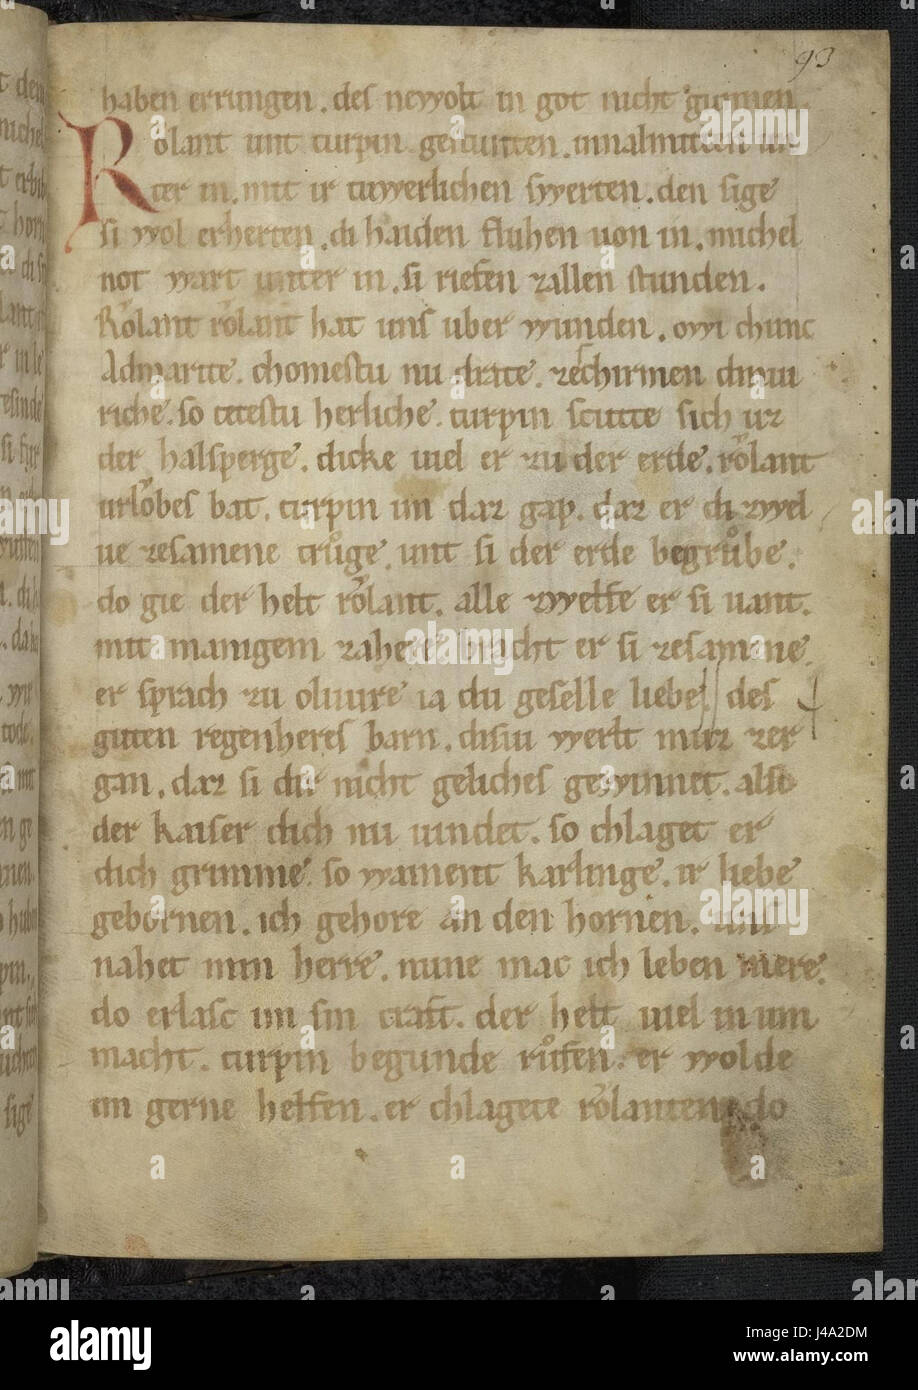 93
haben errungen. des newolt in got nicht gunnen.
Rolant unt turpin gestunten. innalmitten un
ter in. mit ir tuwerlichen swerten. den sige
si wol erherten. di haiden fluhen uon in. michel
not wart unter in. si riefen zallen stunden.
Rolant rolant hat uns uber wunden. owi chunc
Admirate. chomestu nu drate. zechirmen diniu
riche. so tetestu herliche. turpin scutte sich uz
der halsperge. dicke uiel er zu der erde. rolant
urlobes bat. turpin im daz gap. daz er di zwel
ue zesamene truͦge. unt si der erde begruͦbe.
do gie der helt rolant. alle zwelfe er si uant.
mit manigem zahere. bracht er si zesamene.
er sprach zu oliuire ia du geselle liebe. des
guten regenheres barn. disiu werlt muz zer
gan. daz si dir nicht geliches gewinnet. alse
der kaiser dich nu uindet. so chlaget er
dich grimme. so wainent karlinge. ir liebe
gebornen. ich gehore an den hornen. uns
nahet min herre. nune mac ich leben mere.
do erlasc im sin craft. der helt uiel in um
macht. turpin begunde ruͦfen. er wolde
im gerne helfen. er chlagete rolanten. do
alamy
Image ID: J4A2DM
www.alamy.com